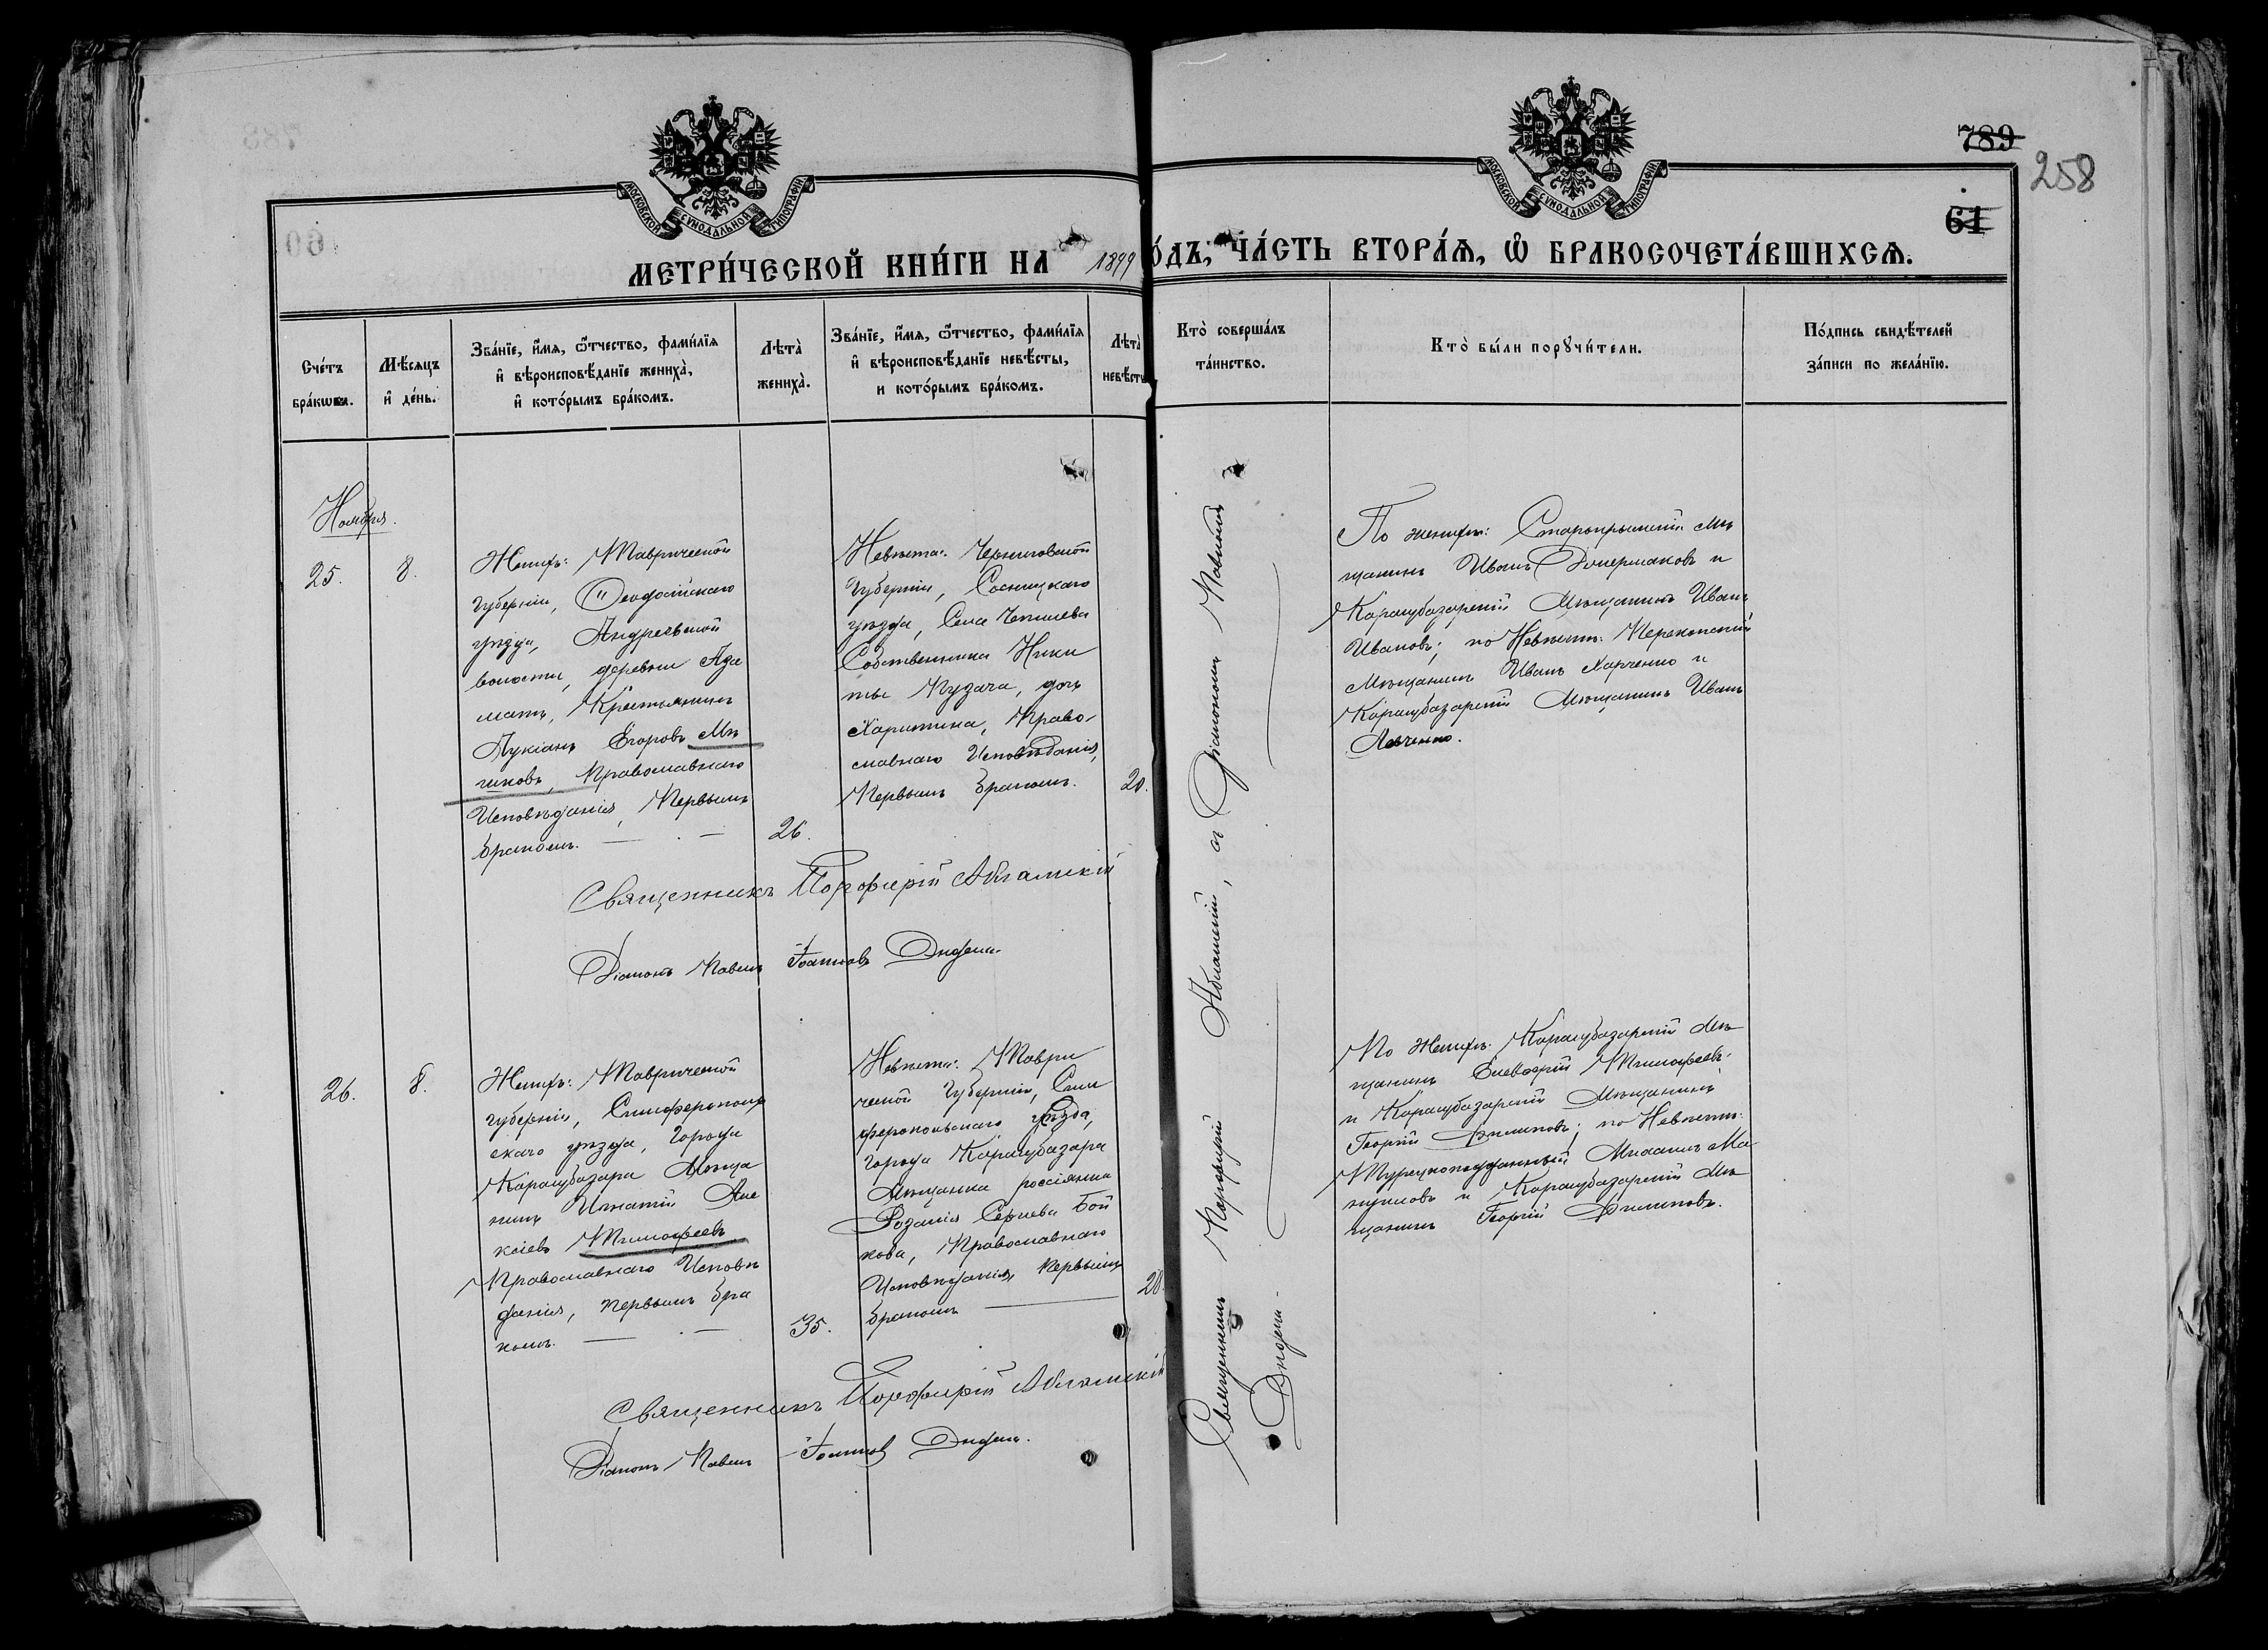 МОСКОВСКОЙ СУНОДАЛЬНОЙ ТИПОГРАФІИ
МОСКОВСКОЙ СУНОДАЛЬНОЙ ТИПОГРАФІИ
789
258
61
МЕТРИ́ЧЕСКОЙ КНИ́ГИ НА 1899 ГО́ДЪ, ЧА́СТЬ ВТОРА́Ѧ, Ѡ҆ БРАКОСОЧЕТА́ВШИХСѦ.
Сче́тъ
бра́кѡвъ.
Мѣ́сѧцъ
и҆ де́нь.
Зва́нїе, и҆́мѧ, ѻ҆́тчество, фами́лїѧ
и҆ вѣроисповѣ́данїе жениха̀,
и҆ кото́рымъ бра́комъ.
Лѣта̀
жениха̀.
Зва́нїе, и҆́мѧ, ѻ҆́тчество, фами́лїѧ
и҆ вѣроисповѣ́данїе невѣ́сты,
и кото́рымъ бра́комъ.
Лѣта̀
невѣ́сты
Кто̀ соверша́лъ
та́инство.
Кто̀ бы́ли порꙋчи́тели.
По́дпись свидѣ́телей
за́писи по жела́нїю.
Ноября.
25.
8.
Женихъ: Таврической
губерніи, Ѳеодосійскаго
уѣзда, Андреевской
волости, деревни Ада
матъ, Крестьянинъ
Лукіанъ Егоровъ Мѣ
шковъ, Православнаго
Исповѣданія, Первымъ
бракомъ.
26.
Невѣста: Черниговской
Губерніи, Сосницкаго
уѣзда, Села
Собственника Ники
ты Пугача, дочь
Харитина, Право-
славнаго Исповѣданія,
Первымъ бракомъ.
20.
Священникъ Порфирій Абламскій
Діаконъ Павелъ Іоанновъ
По женихѣ: Старокрымскій Мѣ
щанинъ Иванъ и
Карасубазарскій Мѣщанинъ Иванъ
Ивановъ; по Невѣстѣ: Перекопскій
Мѣщанинъ Иванъ Харченко и
Карасубазарскій Мѣщанинъ Иванъ
Левченко.
26.
8.
Женихъ: Таврической
губерніи, Симферополь
скаго уѣзда, Города
Карасубазара Мѣща
нинъ Игнатій Але
ксіевъ Тимофеевъ
Православнаго Исповѣ
данія, первымъ бра
комъ.
35.
Невѣста: Таври
ческой Губерніи, Сим
феропольскаго уѣзда,
Города Карасубазара
Мѣщанка россіянка
Розалія Сергіева Бой
кова, Православнаго
Исповѣданія, Первымъ
бракомъ
20.
Священникъ Порфирій Абламскій
Діаконъ Павелъ Іоанновъ
По Женихѣ: Карасубазарскій Мѣ
щанинъ Елевферій Тимофеевъ
и Карасубазарскій Мѣщанинъ
Георгій Филиповъ; по Невѣстѣ:
Турецкоподданный Михаилъ Ма
нуиловъ и Карасубазарскій Мѣ
щанинъ Георгій Филиповъ.
Священникъ Порфирій Абламскій, съ Діакономъ Павломъ